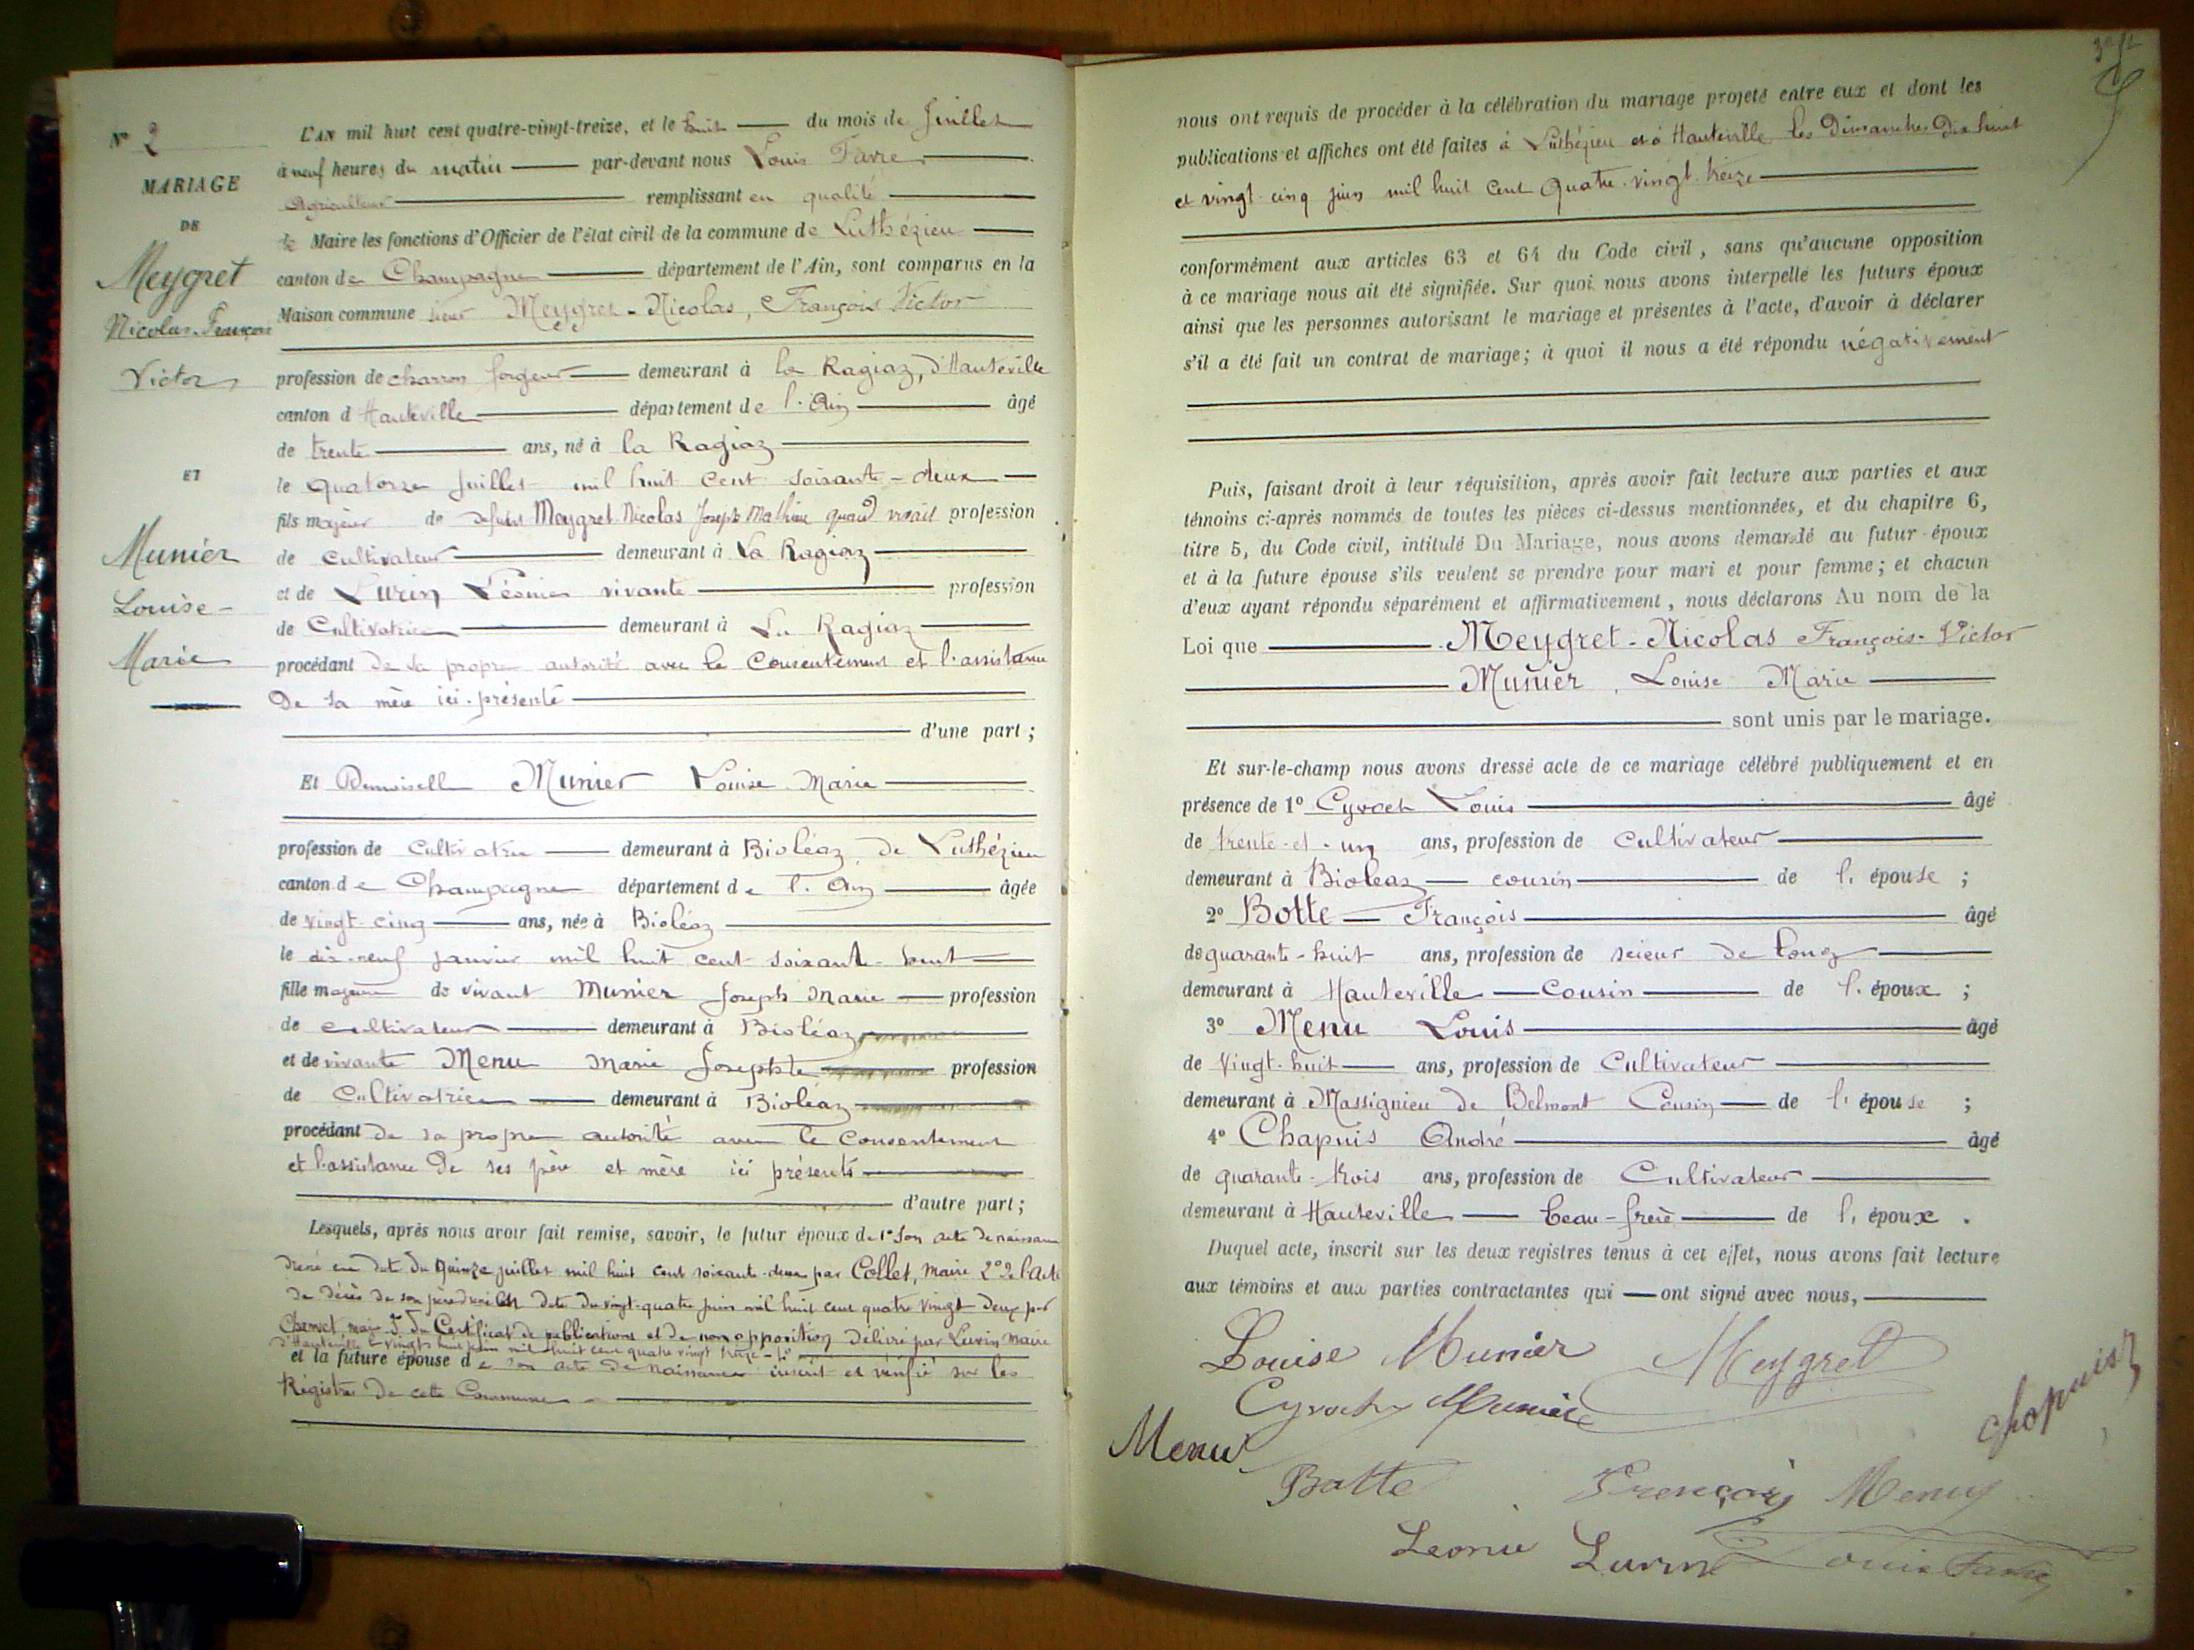 N° 2
MARIAGE
DE
Meygret
Nicolas-François
Victor
ET
Munier
Louise-
Marie
L'AN mil huit cent quatre-vingt-treize, et le huit du mois de Juillet
à neuf heures du matin par-devant nous Louis Favre
Agriculteur remplissant en qualité
de Maire les fonctions d'Officier de l'état civil de la commune de Luthézieu
canton de Champagne département de l'Ain, sont comparus en la
Maison commune sieur Meygret-Nicolas, François Victor
profession de charron forgeur demeurant à la Ragiaz, d'Hauteville
canton d Hauteville département de l'Ain âgé
de trente ans, né à la Ragiaz
le quatorze juillet mil huit cent soixante-deux
fils majeur de defunt Meygret Nicolas Joseph Mathieu quand vivait profession
de cultivateur demeurant à La Ragiaz
et de Lurin Léonie vivante profession
de Cultivatrice demeurant à La Ragiaz
procédant de sa propre autorité avec le consentement et l'assistance
De sa mère ici-présente
d'une part ;
Et Demoiselle Munier Louise Marie
profession de Cultivatrice demeurant à Bioléaz, de Luthézieu
canton de Champagne département de l'Ain âgée
de vingt-cinq ans, née à Bioléaz
le dix-neuf janvier mil huit cent soixante-huit
fille majeure de vivant Munier Joseph Marie profession
de cultivateur demeurant à Bioléaz
et de vivante Menu Marie Josephte profession
de Cultivatrice demeurant à Bioléaz
procédant de sa propre autorité avec le consentement
et l'assistance de ses père et mère ici présents
d'autre part ;
Lesquels, après nous avoir fait remise, savoir, le futur époux de 1° Son acte de naissance
dressé en date du quinze juillet mil huit cent soixante-deux par Collet, maire 2° de l'acte
de décès de son père dressé en date du vingt-quatre juin mil huit cent quatre vingt deux par
maire 3° du Certificat de publications et de non opposition délivré par Lurin maire
d'Hauteville le vingt huit juin mil huit cent quatre vingt treize
et la future épouse de son acte de naissance inscrit et vérifié sur les
Régistres de cette Commune
nous ont requis de procéder à la célébration du mariage projeté entre eux et dont les
publications et affiches ont été faites à Luthézieu et à Hauteville les Dimanches Dix huit
et vingt-cinq juin mil huit cent quatre-vingt-treize
conformément aux articles 63 et 64 du Code civil, sans qu'aucune opposition
à ce mariage nous ait été signifiée. Sur quoi nous avons interpellé les futurs époux
ainsi que les personnes autorisant le mariage et présentes à l'acte, d'avoir à déclarer
s'il a été fait un contrat de mariage; à quoi il nous a été répondu négativement
Puis, faisant droit à leur réquisition, après avoir fait lecture aux parties et aux
témoins ci-après nommés de toutes les pièces ci-dessus mentionnées, et du chapitre 6,
titre 5, du Code civil, intitulé Du Mariage, nous avons demandé au futur époux
et à la future épouse s'ils veulent se prendre pour mari et pour femme ; et chacun
d'eux ayant répondu séparément et affirmativement, nous déclarons Au nom de la
Loi que Meygret-Nicolas François-Victor
Munier, Louise Marie
sont unis par le mariage.
Et sur-le-champ nous avons dressé acte de ce mariage célébré publiquement et en
présence de 1° Cyvoct Louis âgé
de trente-et-un ans, profession de cultivateur
demeurant à Bioléaz cousin de l'épouse ;
2° Botte François âgé
de quarante-huit ans, profession de scieur de long
demeurant à Hauteville cousin de l'époux ;
3° Menu Louis âgé
de Vingt-huit ans, profession de Cultivateur
demeurant à Massignieu de Belmont Cousin de l'épouse ;
4° Chapuis André âgé
de quarante-trois ans, profession de Cultivateur
demeurant à Hauteville beau-frère de l'époux .
Duquel acte, inscrit sur les deux registres tenus à cet effet, nous avons fait lecture
aux témoins et aux parties contractantes qui ont signé avec nous,
Louise Munier Meygret
Cyvoct Munier
chapuis
Menu
Botte François Menu
Leonie Lurin Louis Favre